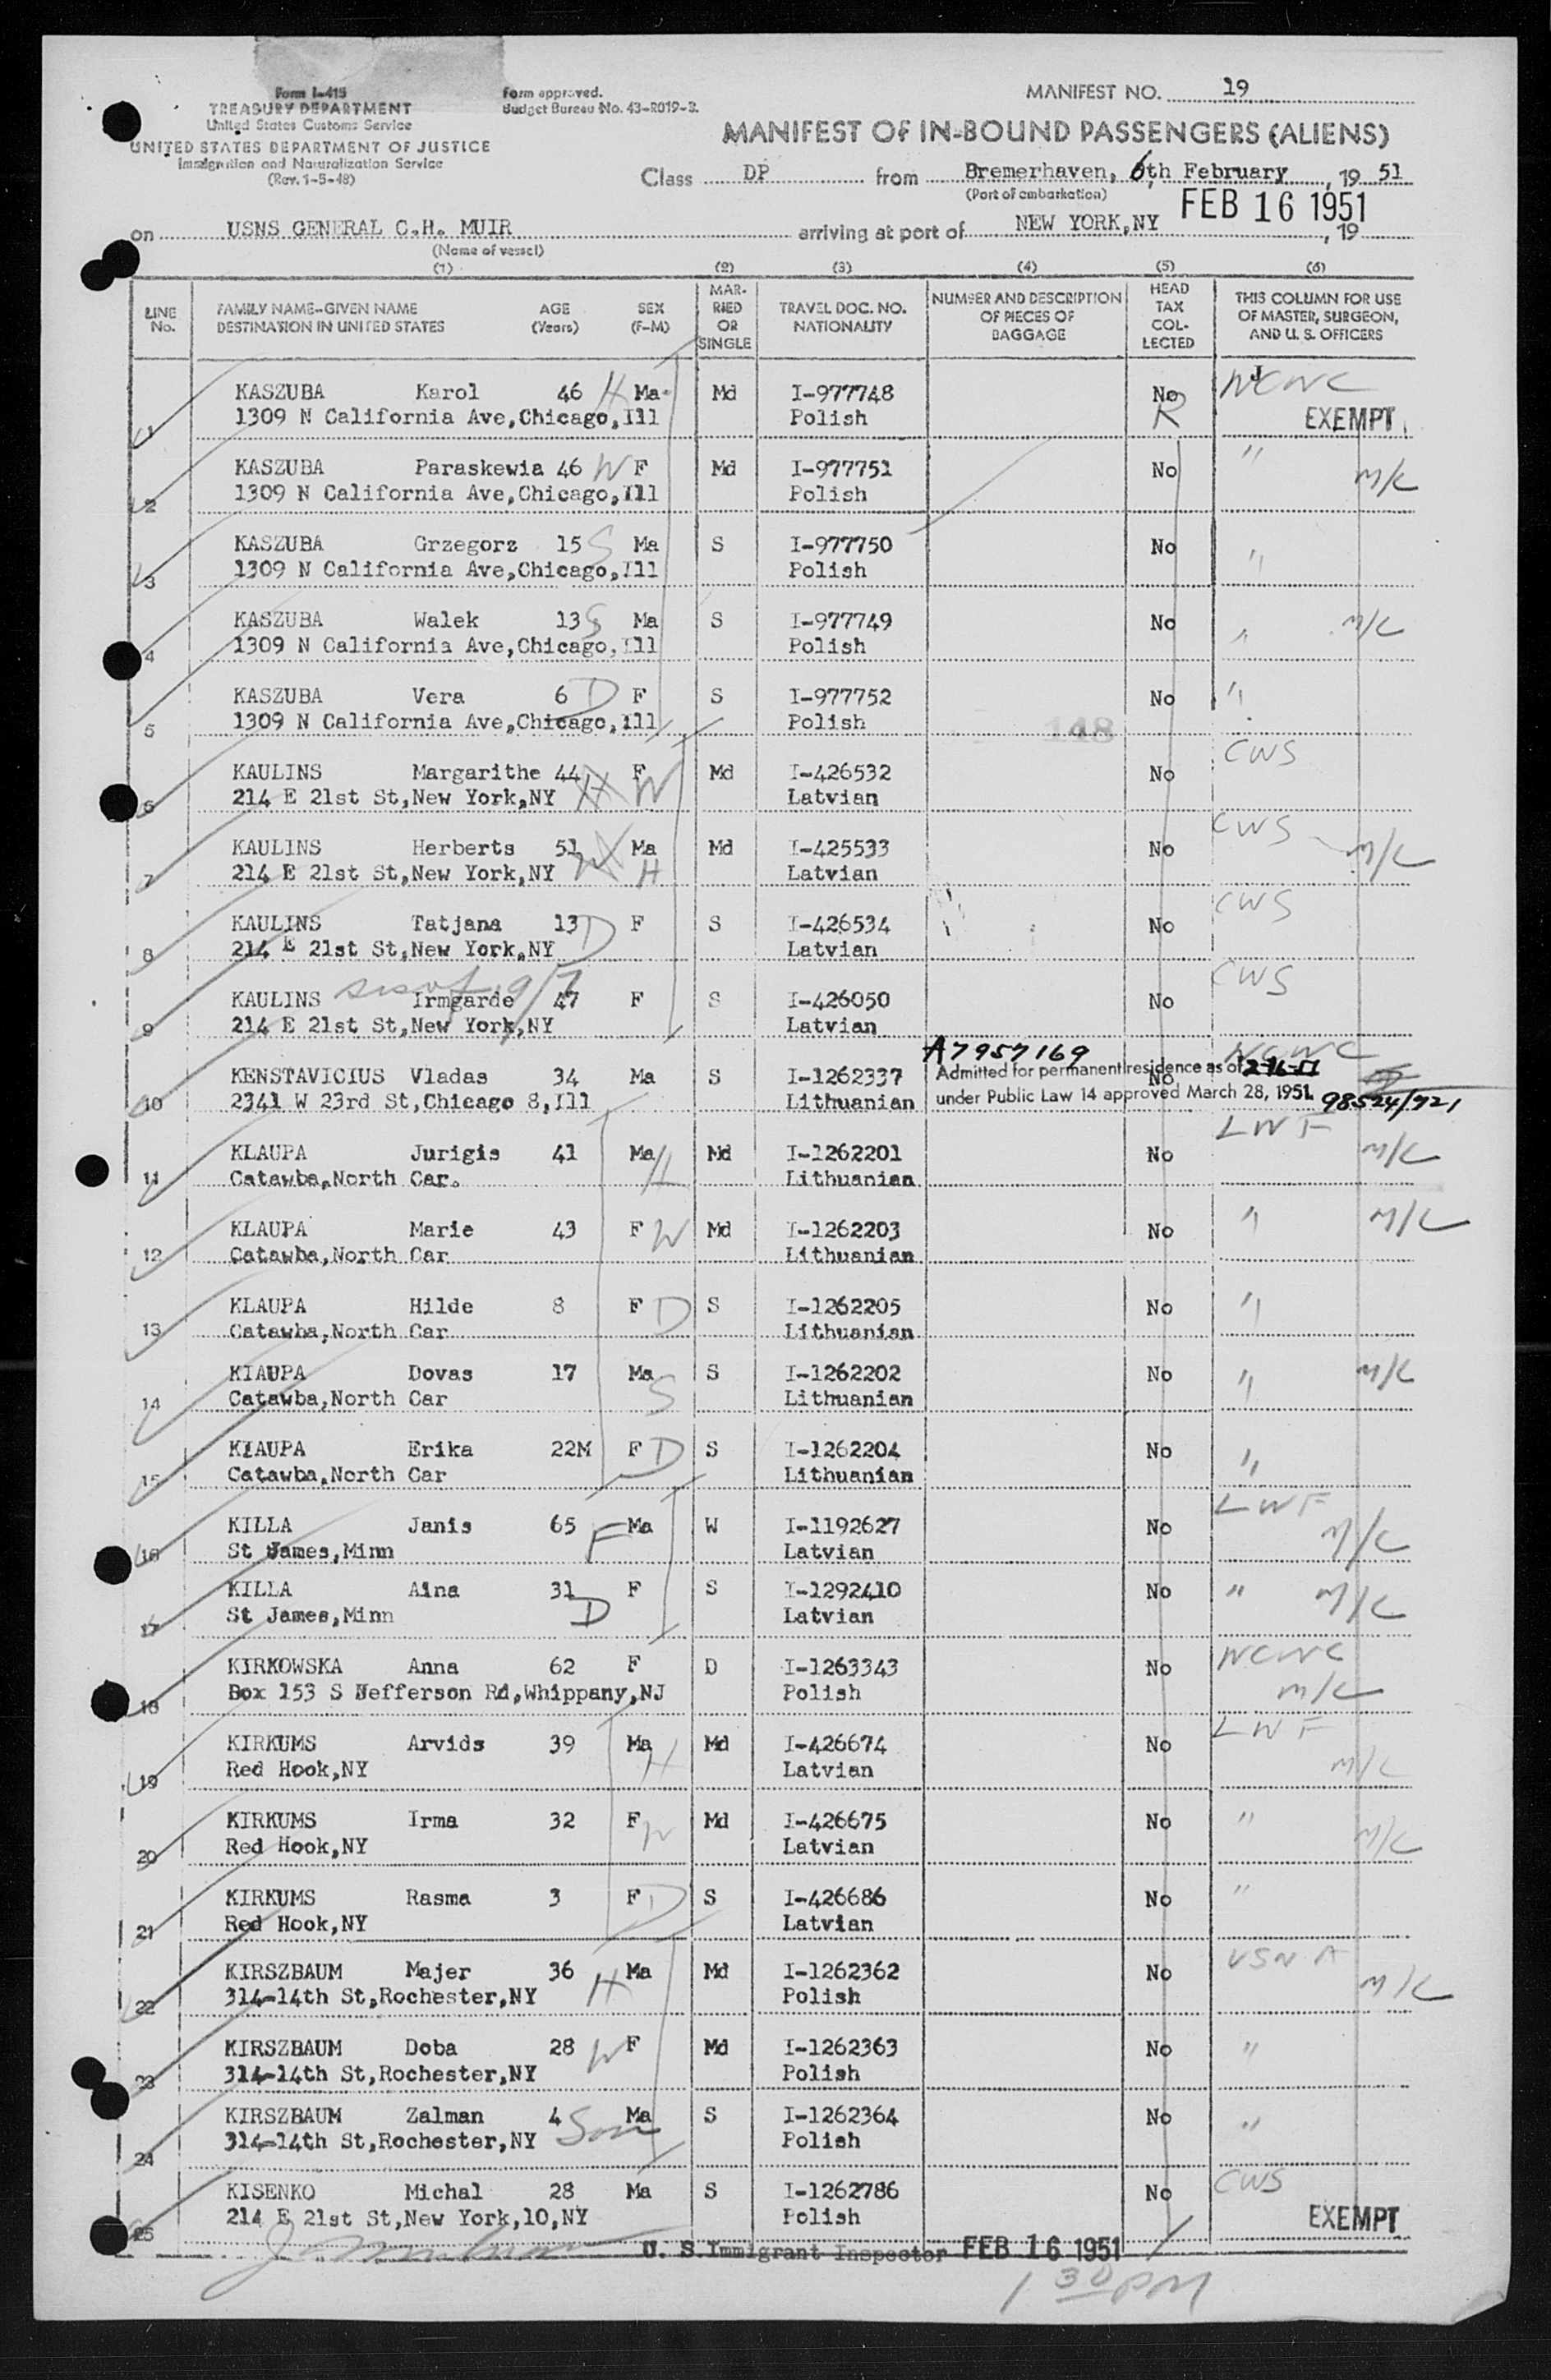 Form I-415
TREASURY DEPARTMENT
United States Customs Service
UNITED STATES DEPARTMENT OF JUSTICE
Immigration and Naturalization Service
(Rev. 1-5-48)
Form approved.
Budget Bureau No. 43-R019-3.
MANIFEST NO. 19
MANIFEST OF IN-BOUND PASSENGERS (ALIENS)
Class DP from Bremerhaven, 6th February, 19 51
(Port of embarkation)
on USNS GENERAL C.H. MUIR arriving at port of NEW YORK,NY FEB 16 1951, 19
(Name of vessel)
(1) (2) (3) (4) (5) (6)
LINE No. FAMILY NAME-GIVEN NAME DESTINATION IN UNITED STATES AGE (Years) SEX (F-M) MARRIED OR SINGLE TRAVEL DOC. NO. NATIONALITY NUMBER AND DESCRIPTION OF PIECES OF BAGGAGE HEAD TAX COLLECTED THIS COLUMN FOR USE OF MASTER, SURGEON, AND U. S. OFFICERS
KASZUBA Karol 46 H Ma Md I-977748 No NCWC
1 1309 N California Ave,Chicago,Ill Polish R EXEMPT
KASZUBA Paraskewia 46 W F Md I-977751 No "
2 1309 N California Ave,Chicago,Ill Polish M/C
KASZUBA Grzegorz 15 S Ma S I-977750 No
3 1309 N California Ave,Chicago,Ill Polish "
KASZUBA Walek 13 S Ma S I-977749 No " M/C
4 1309 N California Ave,Chicago,Ill Polish
KASZUBA Vera 6 D F S I-977752 No "
5 1309 N California Ave,Chicago,Ill Polish 148
KAULINS Margarithe 44 F Md I-426532 No CWS
6 214 E 21st St,New York,NY H W Latvian
KAULINS Herberts 51 Ma Md I-425533 No CWS M/C
7 214 E 21st St,New York,NY W H Latvian
KAULINS Tatjana 13 D F S I-426534 No CWS
8 214 E 21st St,New York,NY Latvian
KAULINS sis of Irmgarde 9/7 47 F S I-426050 No CWS
9 214 E 21st St,New York,NY Latvian
A7957169 NCWC
KENSTAVICIUS Vladas 34 Ma S I-1262337 Admitted for permanent residence as of 2-16-51 No
10 2341 W 23rd St,Chicago 8,Ill Lithuanian under Public Law 14 approved March 28, 1951. 98524/721
KLAUPA Jurigis 41 Ma H Md I-1262201 No LWF M/C
11 Catawba,North Car. Lithuanian
KLAUPA Marie 43 F W Md I-1262203 No " M/C
12 Catawba,North Car Lithuanian
KLAUPA Hilde 8 F D S I-1262205 No "
13 Catawba,North Car Lithuanian
KIAUPA Dovas 17 Ma S S I-1262202 No " M/C
14 Catawba,North Car Lithuanian
KIAUPA Erika 22M F D S I-1262204 No "
15 Catawba,North Car Lithuanian
KILLA Janis 65 F Ma W I-1192627 No LWF M/C
16 St James,Minn Latvian
KILLA Aina 31 F S I-1292410 No " M/C
17 St James,Minn D Latvian
KIRKOWSKA Anna 62 F D I-1263343 No NCWC
18 Box 153 S Jefferson Rd,Whippany,NJ Polish M/C
KIRKUMS Arvids 39 Ma H Md I-426674 No LWF
19 Red Hook,NY Latvian M/C
KIRKUMS Irma 32 F W Md I-426675 No " M/C
20 Red Hook,NY Latvian
KIRKUMS Rasma 3 F D S I-426686 No "
21 Red Hook,NY Latvian
KIRSZBAUM Majer 36 H Ma Md I-1262362 No USNA M/C
22 314-14th St,Rochester,NY Polish
KIRSZBAUM Doba 28 W F Md I-1262363 No "
23 314-14th St,Rochester,NY Polish
KIRSZBAUM Zalman 4 Ma S I-1262364 No "
24 314-14th St,Rochester,NY Son Polish
KISENKO Michal 28 Ma S I-1262786 No CWS
25 214 E 21st St,New York,10,NY Polish EXEMPT
U. S. Immigrant Inspector FEB 16 1951
1 30 PM